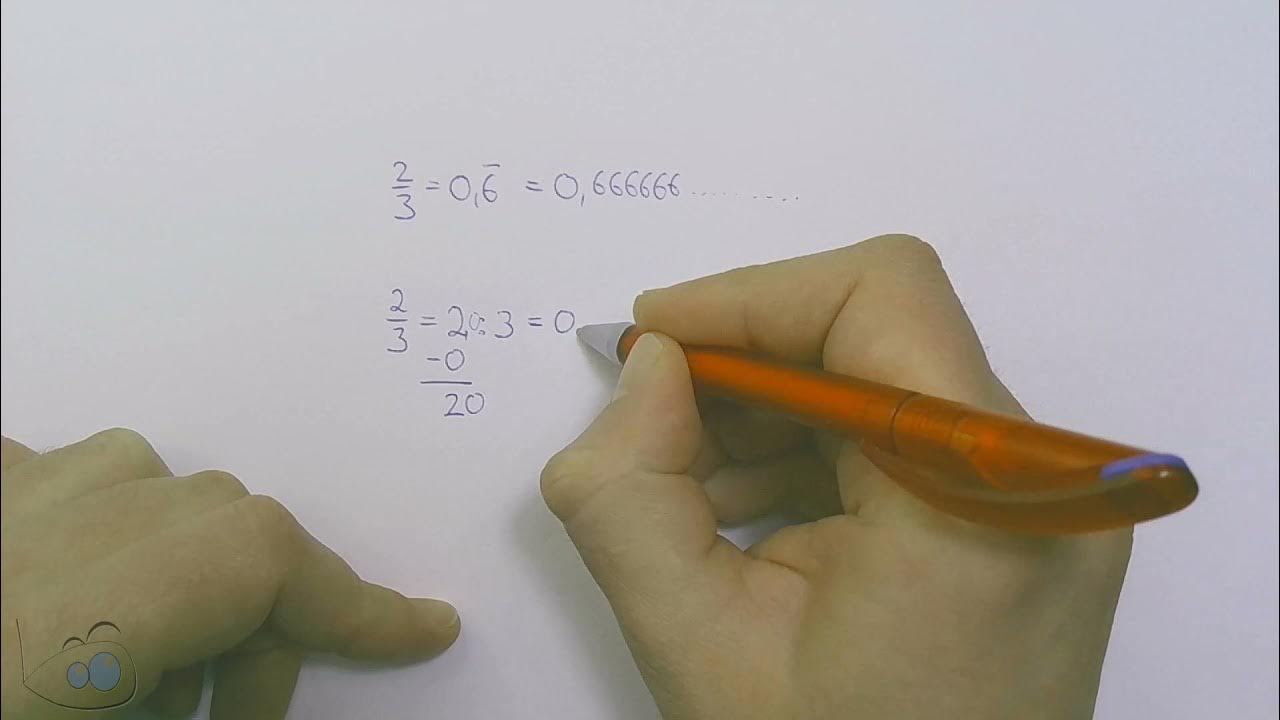 2/3 = 0,6̅ = 0,666666..........
2/3 = 2,0 : 3 = 0,
-0
20